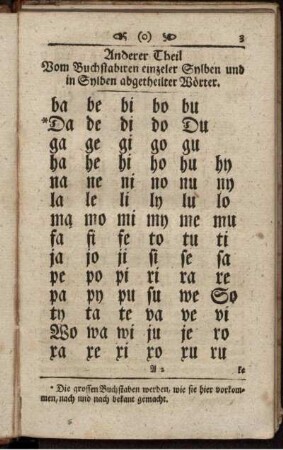 (o) 3
Anderer Theil
Vom Buchstabiren einzeler Sylben und
in Sylben abgetheilter Wörter.
ba be bi bo bu
*Da de di do Du
ga ge gi go gu
ha he hi ho hu hy
na ne ni no nu ny
la le li ly lu lo
ma mo mi my me mu
fa fi fe to tu ti
ja jo ji si se sa
pe po pi ri ra re
pa py pu su we So
ty ta te va ve vi
Wo wa wi ju je ro
xa xe xi xo xu ru
A 2 ke
* Die grossen Buchstaben werden, wie sie hier vorkom-
men, nach und nach bekant gemacht.